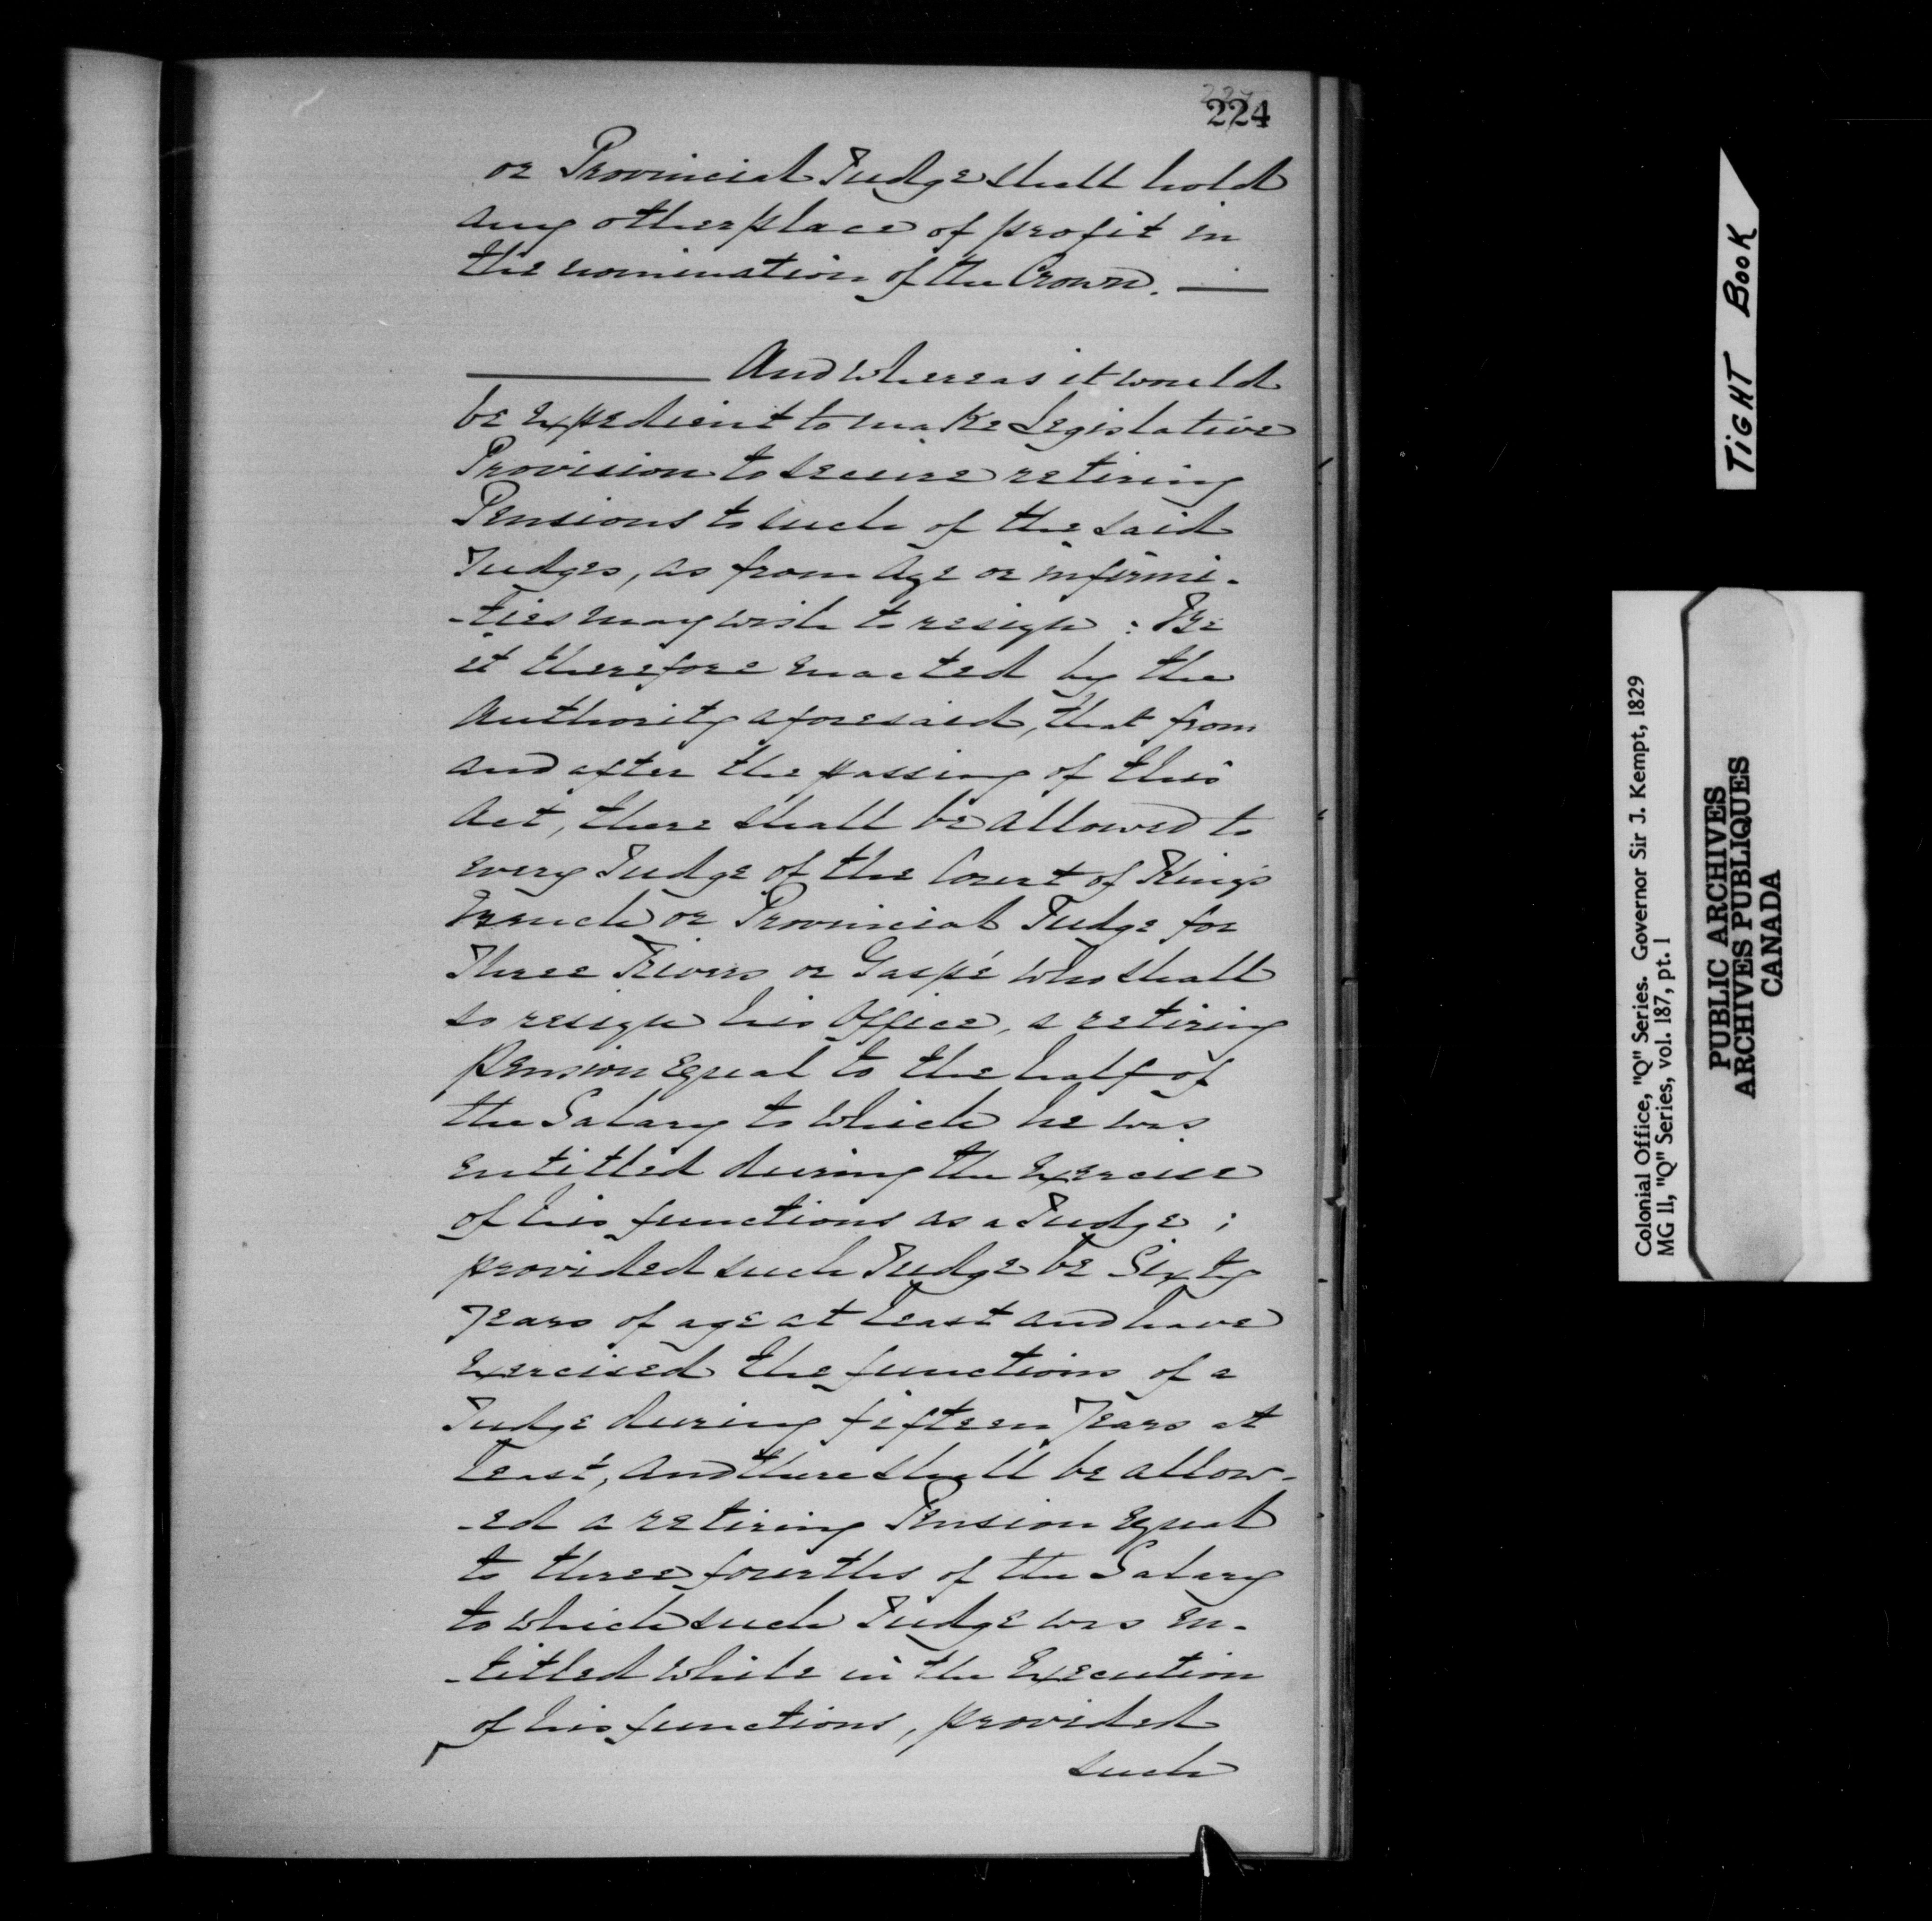 224
or Provincial Judge shall hold
any other place of profit in
the nomination of the Crown. —
— And whereas it would
be expedient to make Legislative
Provision to secure retiring
Pensions to such of the said
Judges, as from age or infirmi-
-ties may wish to resign : Be
it therefore enacted by the
Authority aforesaid, that from
and after the passing of this
Act, there shall be allowed to
every Judge of the Court of King's
Bench or Provincial Judge for
Three Rivers or Gaspé who shall
so resign his Office, a retiring
Pension equal to the half of
the Salary to which he was
entitled during the exercise
of his functions as a Judge ;
provided such Judge be Sixty
Years of age at least and have
exercised the functions of a
Judge during fifteen Years at
least, and there shall be allow-
-ed a retiring Pension equal
to three fourths of the Salary
to which such Judge was en-
-titled while in the Execution
of his functions, provided
such
TIGHT BOOK
Colonial Office, "Q" Series. Governor Sir J. Kempt, 1829
MG 11, "Q" Series, vol. 187, pt. 1
PUBLIC ARCHIVES
ARCHIVES PUBLIQUES
CANADA